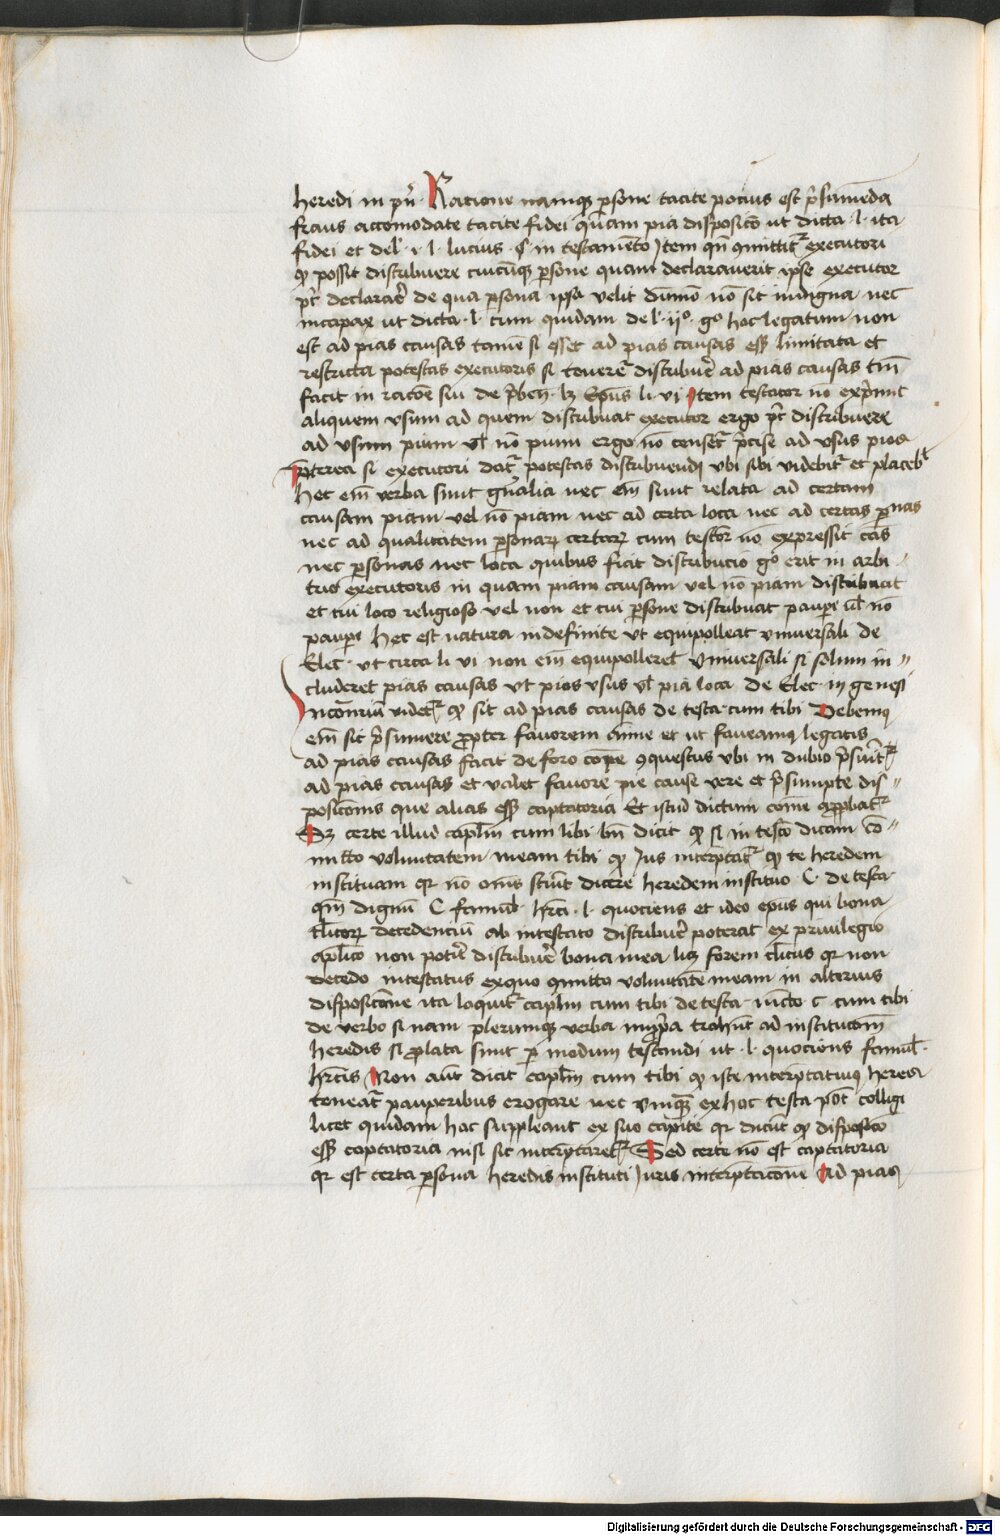 heredi in pn̄ Racione namqꝫ ꝑsone tacite pocius est p̄sumēda
fraus accomodate tacite fidei quam pia disposicō ut dicta l ita
fidei et del r l lucius § in testamēto Item qn̄ ꝯmittitr̄ executori
ꝙ possit distribuere cuicūqꝫ ꝑsone quam declarauerit ipse executor
pt̄ declarar̄ de qua ꝑsona ipse velit dūmō nō sit indigna nec
incapax ut dicta l cum quidam de l ijº gº hoc legatum non
est ad pias causas tamē si esset ad pias causas ess̄ limitata et
restricta potestas executoris si teneret̄ distribuer̄ ad pias causas tm̄
facit in racōe sui de p̄ben lꝫ Ep̄us li vi Item testator nō exp̄mit
aliquem vsum ad quem distribuat executor ergo pt̄ distribuere
ad vsum pium vl̄ nō pium ergo nō censetr̄ p̄cise ad vsus pios
p̄terea si executori datr̄ potestas distribuendi vbi sibi videbitr̄ et placebt̄
Hec em̄ verba sunt gn̄alia nec em̄ sunt relata ad certam
causam piam vel nō piam nec ad certa loca nec ad certas ꝑsonas
nec ad qualitatem ꝑsonarꝝ certarꝝ cum testor̄ nō expressit cās
nec ꝑsonas nec loca quibus fiat distribucio gº erit in arbi
trio executoris in quam piam causam vel nō piam distribuat
et cui loco religioso vel non et cui ꝑsone distribuat paupi vl̄ nō
paupi Hec est natura indefinite vt equipolleat vniuersali de
Elec vt circa li vi non em̄ equipolleret vniuersali si solum in
cluderet pias causas vt pios vsus vl̄ pia loca de Elec in genesi
In cōtrariū videtr̄ ꝙ sit ad pias causas de testa cum tibi Debemꝯ
em̄ sic p̄sumere ꝓpter fauorem anīe et ut faueamꝯ legatis
ad pias causas facit de foro cōpe ꝯquestus vbi in dubio p̄sumitr̄
ad pias causas et valet fauore pie cause vere et p̄sumpte dis
posicōnis que alias ess̄ captatoria Et istud dictum cōmē ap̄probatr̄
Sꝫ certe illud caplm̄ cum tibi bn̄ dicit ꝙ si in testō dicam cō
mitto voluntatem meam tibi ꝙ Ius interp̄tatr̄ ꝙ te heredem
instituam qr nō om̄s sciūt dicere heredem instituo C de testa
qm̄ dignū C famil hr̄ci l quociens et ideo ep̄us qui bona
cl̄icorꝝ decedenciū ab intestato distribuer̄ poterat ex priuilegio
ap̄lico non potuit distribuer̄ bona mea licꝫ forem cl̄icus qr non
decedo intestatus ex quo ꝯmitto voluntatē meam in alterius
disposicōne ita loquitr̄ caplm̄ cum tibi de testa iūcto c cum tibi
de verbo si nam plerumqꝫ verba imp̄pria trahūt ad institucōem
heredis si ꝓlata sunt ꝑ modum testandi ut l quociens famil
hr̄cis Non aūt dicit caplm̄ cum tibi ꝙ iste interp̄tatiuꝯ heres
teneatr̄ pauperibus erogare nec vnqꝫ ex hoc testa pōt colligi
licet quidam hoc suppleant ex suo capite qr dicūt ꝙ disposicō
ess̄ captatoria nisi sic interp̄taretr̄ Sed certe nō est captatoria
qr est certa ꝑsona heredis instituti Iuris interp̄tacōne Ad pias
Digitalisierung gefördert durch die Deutsche Forschungsgemeinschaft - DFG